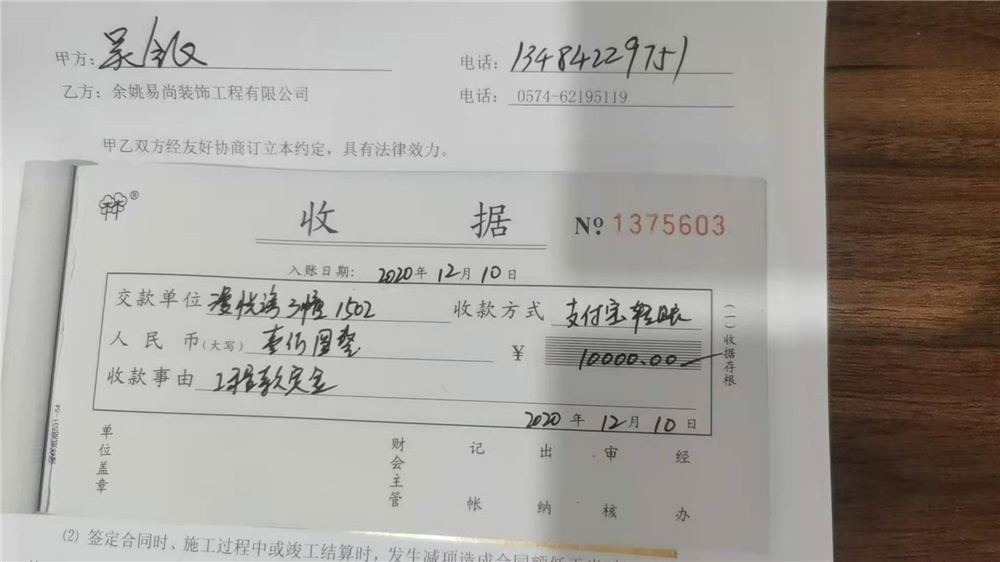 甲方： 电话：13484229751
乙方：余姚易尚装饰工程有限公司 电话：0574-62195119
甲乙双方经友好协商订立本约定，具有法律效力。
®
收 据 No. 1375603
入账日期：2020年12月10日
交款单位 3幢1502 收款方式 支付宝转账
人民币(大写) 壹佰圆整 ¥ 10000.00
收款事由 工程款定金
2020年12月10日
(一)收据存根
单位盖章 财会主管 记帐 出纳 审核 经办
(2) 签定合同时、施工过程中或竣工结算时，发生减项造成合同额低于